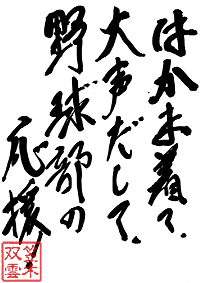 はかま着て、
大事だして、
野球部の
応援!
双雲